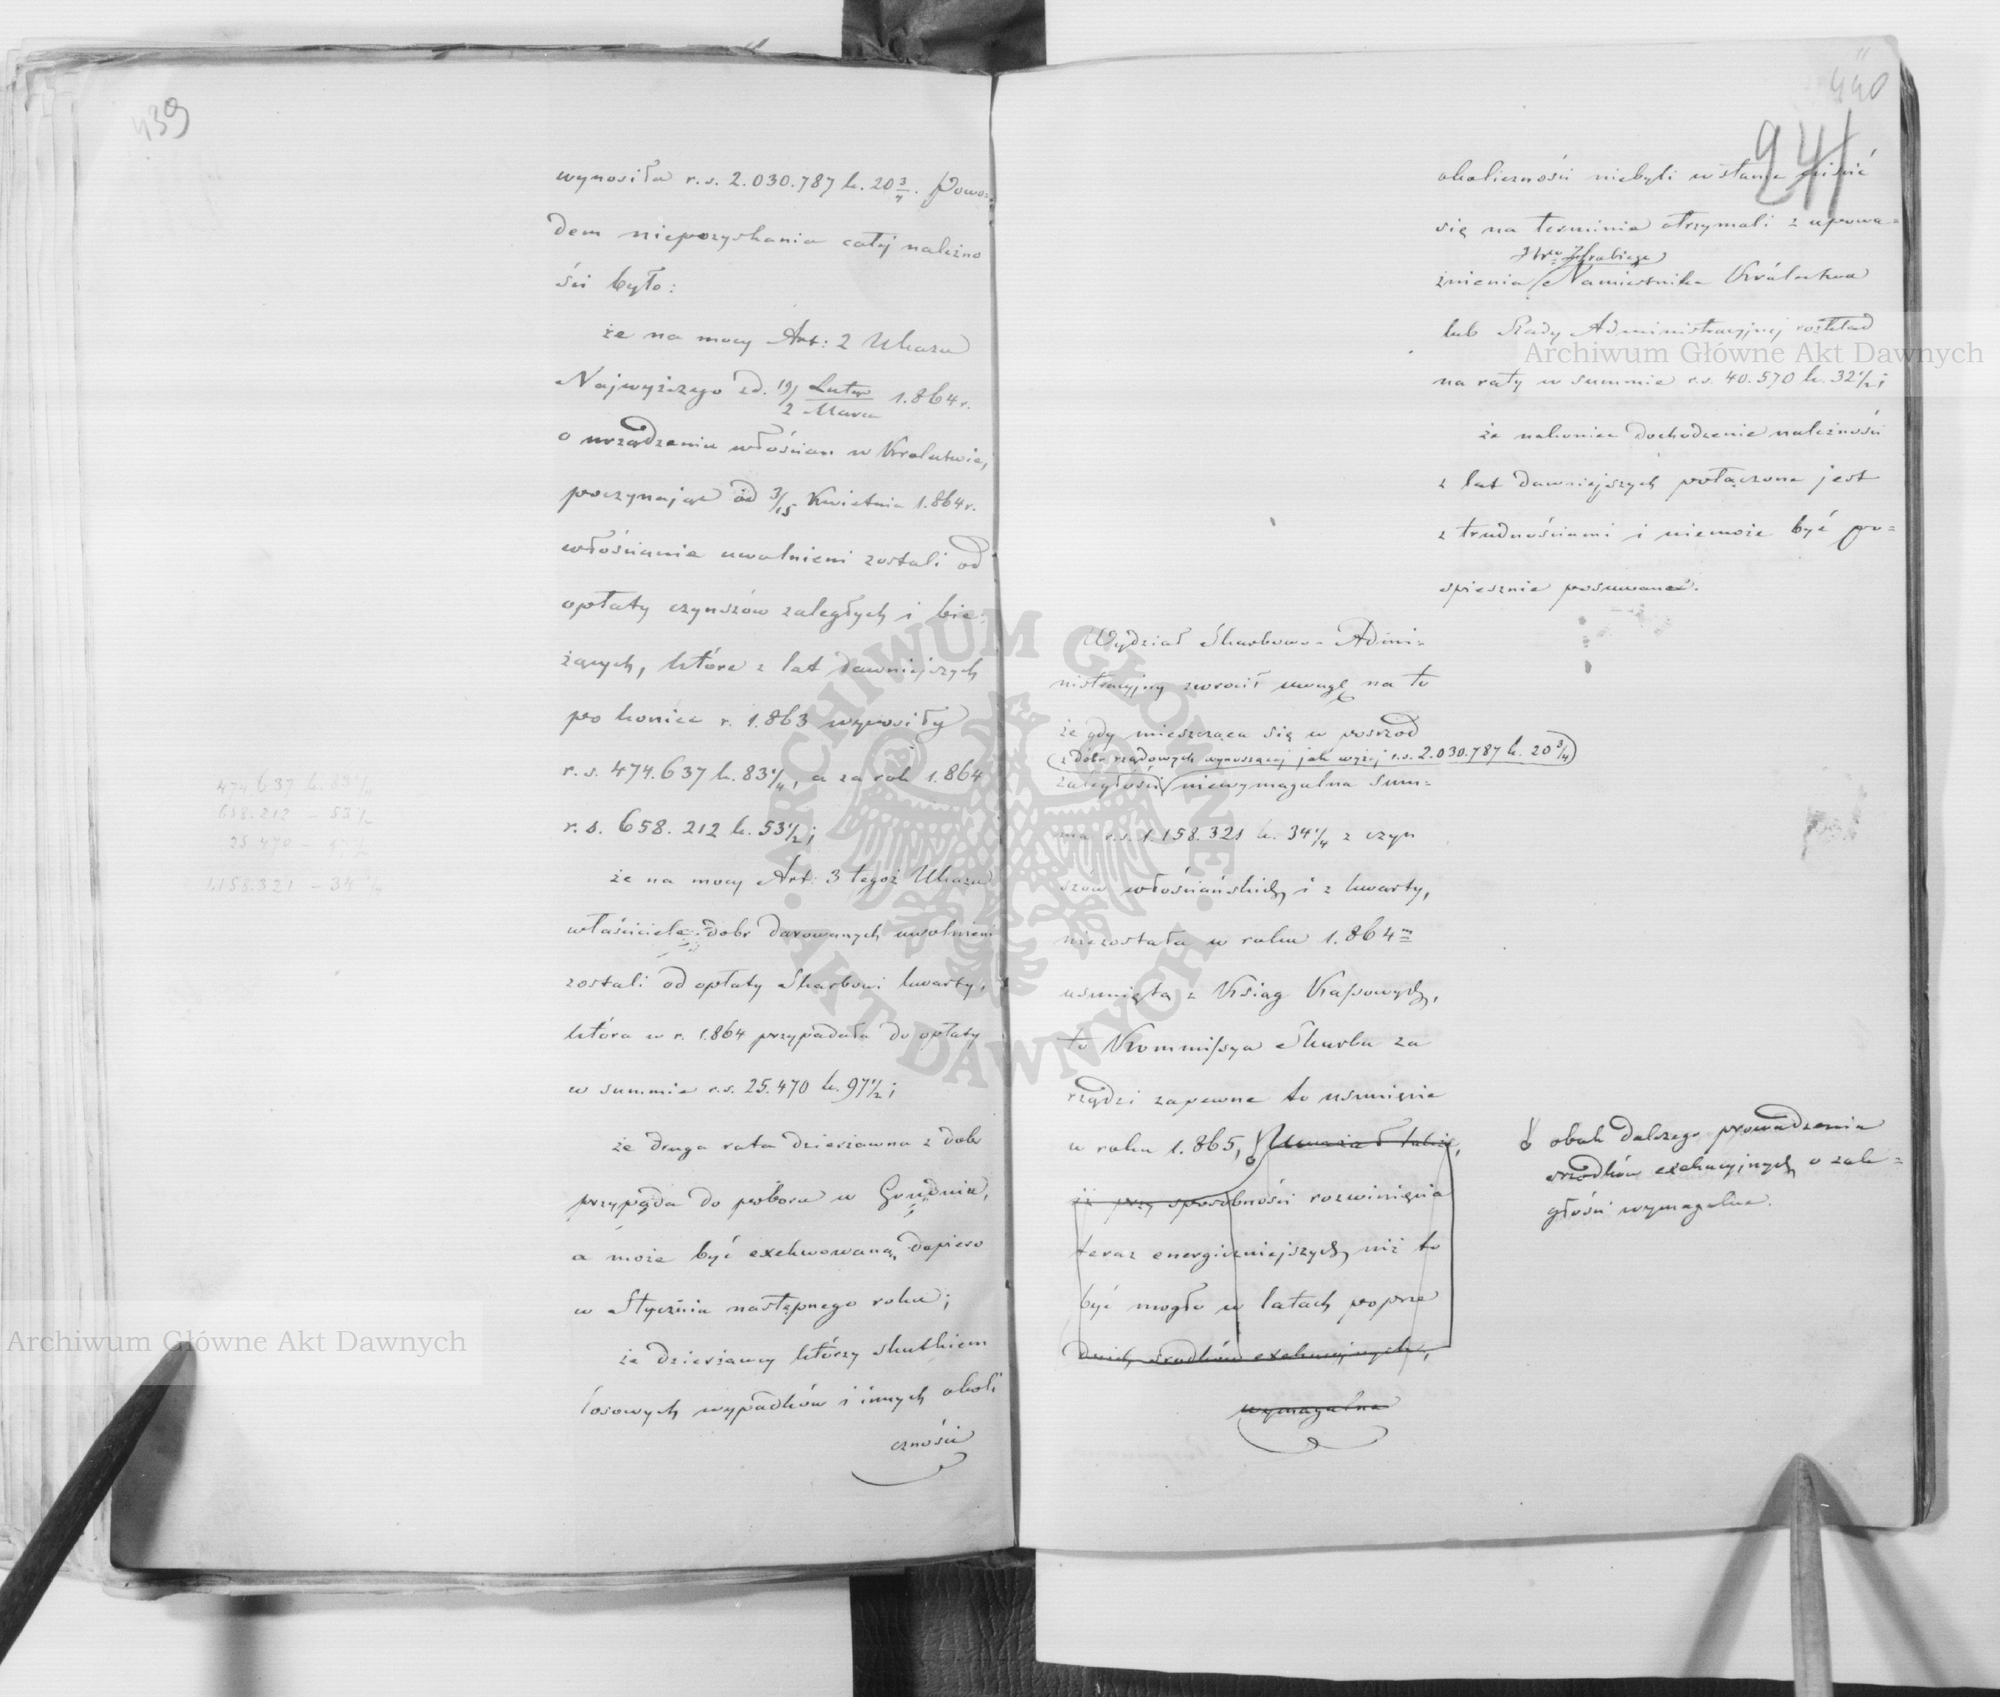 439
wynosiła r.s. 2.030.787 k. 20 3/4. Powo=
dem niepozyskania całej należno
ści było:
że na mocy Art: 2 Ukazu
Najwyższego z d. 19/2 Lutego/Marca 1.864 r.
o urządzeniu włościan w Krolestwie,
poczynając od 3/15 Kwietnia 1.864 r.
włościanie uwolnieni zostali od
opłaty czynszów zaległych i bie=
żących, które z lat dawniejszych
po koniec r. 1.863 wynosiły
r.s. 474.637 k. 83 1/4, a za rok 1.864
r.s. 658.212 k. 53 1/2;
że na mocy Art: 3 tegoż Ukazu
właściciele dobr darowanych uwolnieni
zostali od opłaty Skarbowi kwarty,
która w r. 1.864 przypadała do opłaty
w summie r.s. 25.470 k. 97 1/2;
że druga rata dzierżawna z dobr
przypada do poboru w Grudniu,
a może być exekwowaną dopiero
w Styczniu następnego roku;
że dzierżawcy którzy skutkiem
losowych wypadków i innych okoli
czności
474.637 k. 83 1/4
658.212 – 53 1/2
25.470 – 97 1/2
1.158.321 – 34 1/4
440
241
okoliczności niebyli w stanie uiścić
się na terminie otrzymali z upowa=
Hrabiego
żnienia Namiestnika Królestwa
lub Rady Administracyjnej rozkład
na raty w summie r.s. 40.570 k. 32 1/2;
że nakoniec dochodzenie należności
z lat dawniejszych połączone jest
z trudnościami i niemoże być po=
spiesznie posuwane.
Wydział Skarbowo-Admini=
nistracyjny zwrócił uwagę na to
że gdy mieszcząca się w posrzod
z dobr rządowych wynoszącej jak wyżej r.s. 2.030.787 k. 20 3/4
zaległości niewymagalna Sum=
ma r.s. 1.158.321 k. 34 1/4 z czyn
szów włościańskich i z kwarty,
niezostała w roku 1.864 m
usunięta z Ksiag Kassowych,
to Kommissya Skarbu za
rządzi zapewne to usunięcie
w roku 1.865, Uważał także,
iż przy sposobności rozwinięcia
teraz energiczniejszych niż to
być mogło w latach poprze
dnich srodków exekucyjnych,
wymagalna
obok dalszego prowadzenia
srzodków exekucyjnych o zale=
głości wymagalne.
Archiwum Główne Akt Dawnych
Archiwum Główne Akt Dawnych
ARCHIWUM GŁÓWNE AKT DAWNYCH